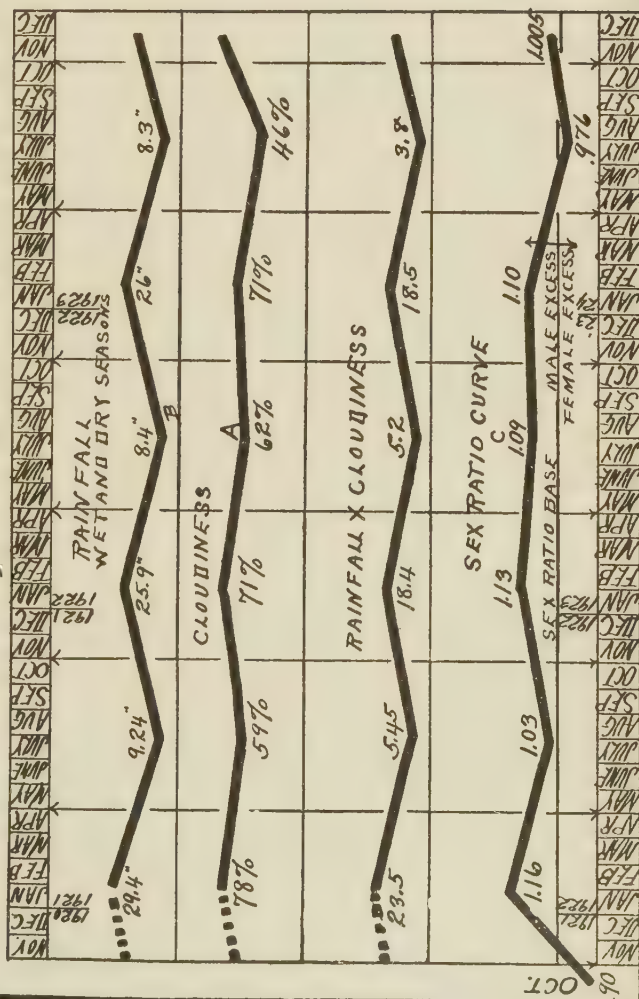 NOV. DEC. JAN FEB MAR APR MAY JUNE JULY AUG SEP OCT NOV DEC JAN FEB MAR APR MAY JUNE JULY AUG SEP OCT NOV DEC JAN FEB MAR APR MAY JUNE JULY AUG SEP OCT NOV DEC
1920 1921 1921 1922 1922 1923
RAINFALL
WET AND DRY SEASONS
29.4" 9.24" 25.9" 8.4" B 26" 8.3"
CLOUDINESS
A
78% 59% 71% 62% 71% 46%
RAINFALL X CLOUDINESS
23.5 5.45 18.4 5.2 18.5 3.8
SEX RATIO CURVE
C
1.16 1.03 1.13 1.09 1.10 .976 1.005
SEX RATIO BASE MALE EXCESS
FEMALE EXCESS
OCT.
.90
1921 1922 1922 1923 '23 JAN 24
NOV DEC JAN FEB MAR APR MAY JUNE JULY AUG SEP OCT NOV DEC JAN FEB MAR APR MAY JUNE JULY AUG SEP OCT NOV DEC FEB MAR APR MAY JUNE JULY AUG SEP OCT NOV DEC